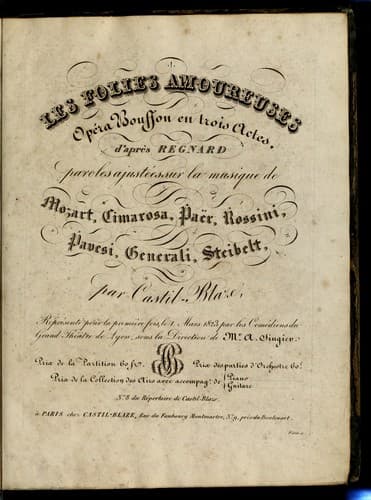 LES FOLIES AMOUREUSES
Opéra Bouffon en trois Actes,
d'après REGNARD
paroles ajustées sur la musique de
Mozart, Cimarosa, Paër, Rossini,
Pavesi, Generali, Steibelt,
par Castil-Blaze,
Représenté pour la première fois, le 1 Mars 1823 par les Comédiens du
Grand Théâtre de Lyon, sous la Direction de Mr. A. Singier.
Prix de la Partition 60 fr. Prix des parties d'Orchestre 60f.
Prix de la Collection des Airs avec accompagt. de Piano
Guitare
No. 8 du Répertoire de Castil-Blaze.
à PARIS chez CASTIL-BLAZE, Rue du Faubourg Montmartre, No. 9, près du Boulevart.